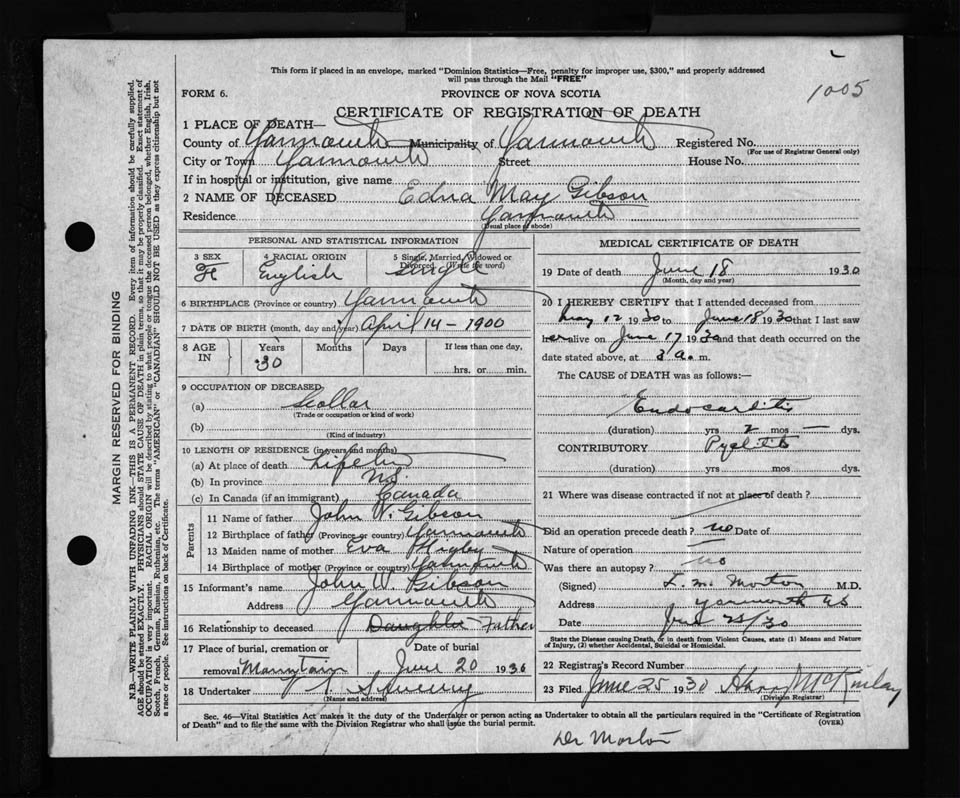 1005
This form if placed in an envelope, marked "Dominion Statistics—Free, penalty for improper use, $300," and properly addressed
will pass through the Mail "FREE"
FORM 6. PROVINCE OF NOVA SCOTIA
CERTIFICATE OF REGISTRATION OF DEATH
1 PLACE OF DEATH—
County of Yarmouth Municipality of Yarmouth Registered No.
(For use of Registrar General only)
City or Town Yarmouth Street House No.
If in hospital or institution, give name
2 NAME OF DECEASED Edna May Gibson
Residence Yarmouth
(Usual place of abode)
PERSONAL AND STATISTICAL INFORMATION
3 SEX 4 RACIAL ORIGIN 5 Single, Married, Widowed or
Divorced. (Write the word)
F English Single
6 BIRTHPLACE (Province or country) Yarmouth
7 DATE OF BIRTH (month, day and year) April 14 – 1900
8 AGE IN Years Months Days If less than one day,
30 hrs. or min.
9 OCCUPATION OF DECEASED
(a)
(Trade or occupation or kind of work)
(b)
(Kind of industry)
10 LENGTH OF RESIDENCE (in years and months)
(a) At place of death Life
(b) In province
(c) In Canada (if an immigrant) Canada
Parents
11 Name of father John W. Gibson
12 Birthplace of father (Province or country) Yarmouth
13 Maiden name of mother Eva
14 Birthplace of mother (Province or country) Yarmouth
15 Informant's name John W. Gibson
Address Yarmouth
16 Relationship to deceased Daughter Father
17 Place of burial, cremation or Date of burial
removal June 20 1930
18 Undertaker
(Name and address)
MEDICAL CERTIFICATE OF DEATH
19 Date of death June 18 1930
(Month, day and year)
20 I HEREBY CERTIFY that I attended deceased from
May 12 1930 to June 18 1930 that I last saw
her alive on June 17 1930 and that death occurred on the
date stated above, at 3 a. m.
The CAUSE of DEATH was as follows:—
Endocarditis
(duration) yrs 2 mos — dys.
CONTRIBUTORY Pyelitis
(duration) yrs mos dys.
21 Where was disease contracted if not at place of death?
Did an operation precede death? no Date of
Nature of operation —
Was there an autopsy? no
(Signed) L. M. Morton M.D.
Address Yarmouth NS
Date June 25/30
State the Disease causing Death, or in death from Violent Causes, state (1) Means and Nature
of Injury, (2) whether Accidental, Suicidal or Homicidal.
22 Registrar's Record Number
23 Filed June 25 1930 McKinlay
(Division Registrar)
Sec. 46—Vital Statistics Act makes it the duty of the Undertaker or person acting as Undertaker to obtain all the particulars required in the "Certificate of Registration
of Death" and to file the same with the Division Registrar who shall issue the burial permit. (OVER)
Dr Morton
MARGIN RESERVED FOR BINDING
N.B.—WRITE PLAINLY WITH UNFADING INK—THIS IS A PERMANENT RECORD. Every item of information should be carefully supplied.
AGE should be stated EXACTLY. PHYSICIANS should STATE CAUSE OF DEATH in plain terms, so that it may be properly classified. Exact statement of
OCCUPATION is very important. RACIAL ORIGIN will be described by stating to what people or tongue the deceased person belonged, whether English, Irish,
Scotch, French, German, Russian, Ruthenian, etc. The terms "AMERICAN" or "CANADIAN" SHOULD NOT BE USED as they express citizenship but not
a race or people. See instructions on back of Certificate.